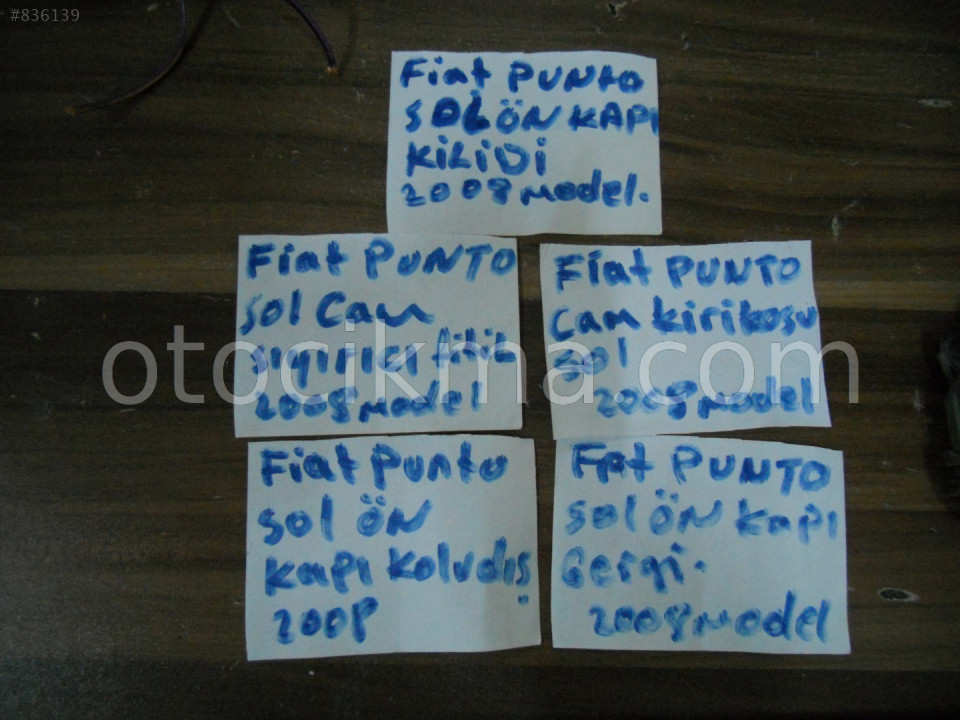 #836139
Fiat PUNTO
SOL ÖN KAPI
KiLiDi
2008 Model.
Fiat PUNTO
Sol Cam
sıyırıcı fitil
2008 Model
Fiat PUNTO
Cam kirikosu
sol
2008 Model
Fiat Punto
sol ÖN
Kapı Koludış
2008
Fiat PUNTO
sol ÖN Kapı
Gergi.
2008 Model
otocikma.com